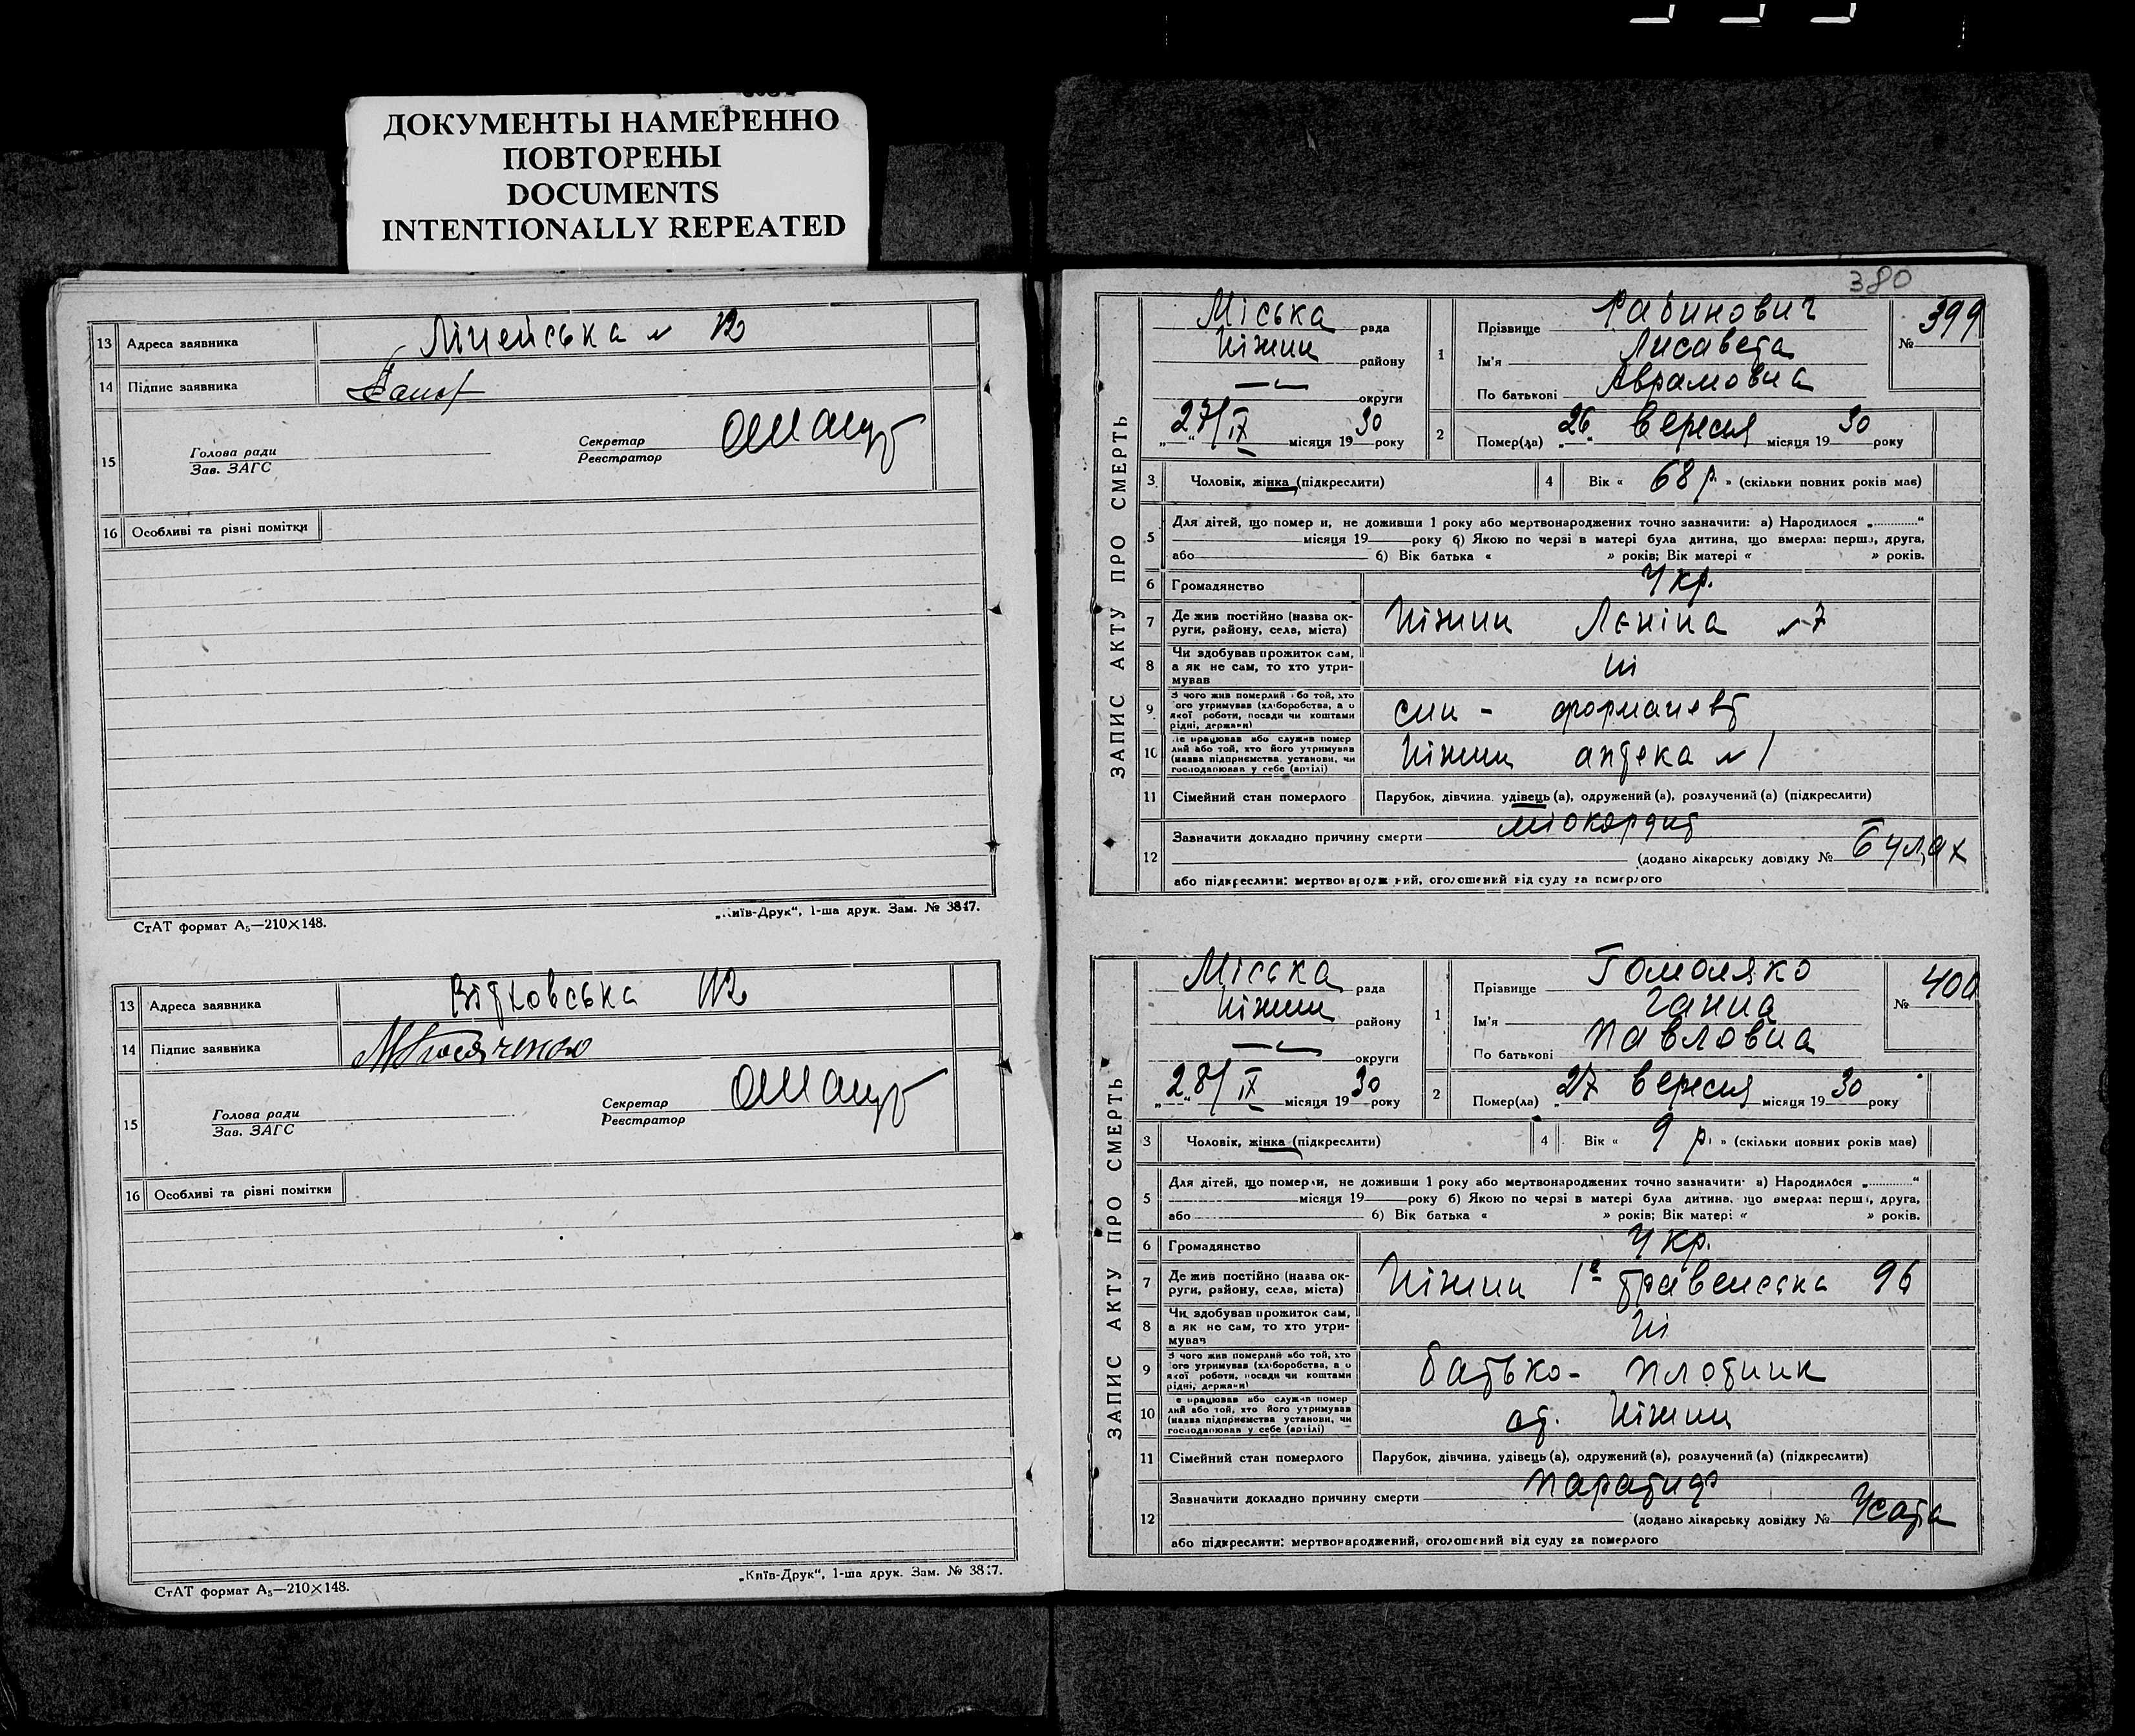 ДОКУМЕНТЫ НАМЕРЕННО
ПОВТОРЕНЫ
DOCUMENTS
INTENTIONALLY REPEATED
13 Адреса заявника Ліцейська № 12
14 Підпис заявника
15 Голова ради
Зав. ЗАГС
Секретар
Реєстратор
16 Особливі та різні помітки
СтАТ формат А₅—210×148.
„Київ-Друк“, 1-ша друк. Зам. № 3817.
13 Адреса заявника
14 Підпис заявника
15 Голова ради
Зав. ЗАГС
Секретар
Реєстратор
16 Особливі та різні помітки
СтАТ формат А₅—210×148.
„Київ-Друк“, 1-ша друк. Зам. № 3817.
380
ЗАПИС АКТУ ПРО СМЕРТЬ
Міська рада
Ніжин району
— округи
27/IX місяця 1930 року
1 Прізвище Рабинович
Ім'я Лисавета
По батькові Аврамовна
№ 399
2 Помер(ла) „26“ вересня місяця 1930 року
3 Чоловік, жінка (підкреслити)
4 Вік « 68 р. » (скільки повних років має)
5 Для дітей, що померли, не доживши 1 року або мертвонароджених точно зазначити: а) Народилося „............“
місяця 19 року б) Якою по черзі в матері була дитина, що вмерла: перша, друга,
або б) Вік батька « » років; Вік матері « » років.
6 Громадянство Укр.
7 Де жив постійно (назва ок-
руги, району, села, міста) Ніжин Леніна № 7
8 Чи здобував прожиток сам,
а як не сам, то хто утри-
мував ні
9 З чого жив померлий або той, хто
його утримував (хліборобства, а о
якої роботи, посади чи коштами
рідні, держави) син - формацевт
10 Де працював або служив помер
лий або той, хто його утримував
(назва підприємства установи, чи
господарював у себе (артілі) Ніжин аптека № 1
11 Сімейний стан померлого Парубок, дівчина, удівець (а), одружений (а), розлучений (а) (підкреслити)
12 Зазначити докладно причину смерти міокардит
(додано лікарську довідку № Булах
або підкреслити: мертвонароджений, оголошений від суду за померлого
ЗАПИС АКТУ ПРО СМЕРТЬ
Міська рада
Ніжин району
— округи
28/IX місяця 1930 року
1 Прізвище Гомоляко
Ім'я Ганна
По батькові Павловна
№ 400
2 Помер(ла) „27 вересня місяця 1930 року
3 Чоловік, жінка (підкреслити)
4 Вік « 9 р. » (скільки повних років має)
5 Для дітей, що померли, не доживши 1 року або мертвонароджених точно зазначити: а) Народилося „............“
місяця 19 року б) Якою по черзі в матері була дитина, що вмерла: перша, друга,
або б) Вік батька « » років; Вік матері « » років.
6 Громадянство Укр.
7 Де жив постійно (назва ок-
руги, району, села, міста) Ніжин 1е травенська 96
8 Чи здобував прожиток сам,
а як не сам, то хто утри-
мував Ні
9 З чого жив померлий або той, хто
його утримував (хліборобства, а о
якої роботи, посади чи коштами
рідні, держави) батько - плотник
10 Де працював або служив помер
лий або той, хто його утримував
(назва підприємства установи, чи
господарював у себе (артілі) ст. Ніжин
11 Сімейний стан померлого Парубок, дівчина, удівець (а), одружений (а), розлучений (а) (підкреслити)
12 Зазначити докладно причину смерти паратиф
(додано лікарську довідку № Усата
або підкреслити: мертвонароджений, оголошений від суду за померлого